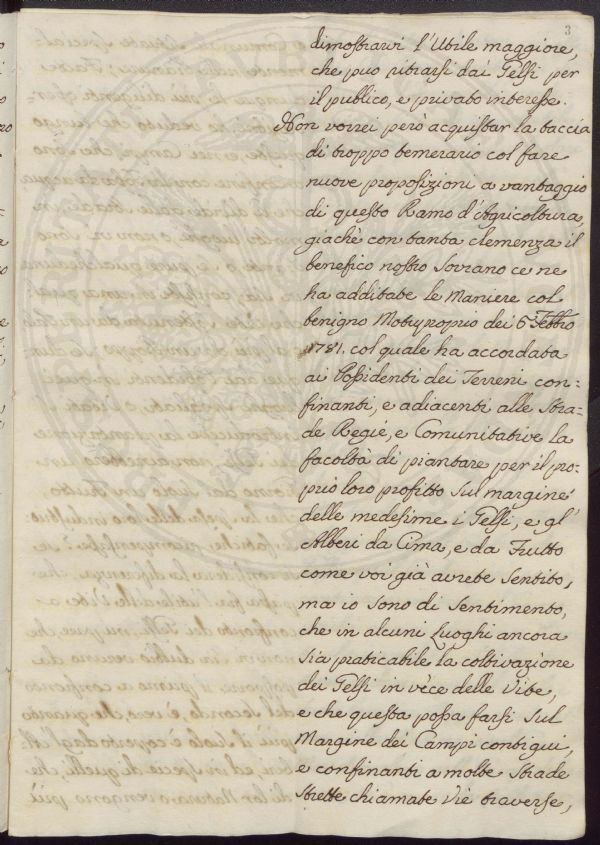 3
dimostrarvi l'Utile maggiore,
che può ritrarsi dai Gelsi per
il publico, e privato interesse.
Non vorrei però acquistar la taccia
di troppo temerario col fare
nuove proposizioni a vantaggio
di questo Ramo d'Agricoltura,
giachè con tanta clemenza il
benefico nostro Sovrano ce ne
ha additate le Maniere col
benigno Motuproprio dei 6 Febbro
1781. col quale ha accordata
ai Possidenti dei Terreni con=
finanti, e adiacenti alle Stra=
de Regie, e Comunitative la
facoltà di piantare per il pro=
prio loro profitto sul margine
delle medesime i Gelsi, e gl'
Alberi da Cima, e da Frutto
come voi già avrete sentito,
ma io sono di sentimento,
che in alcuni Luoghi ancora
sia praticabile la coltivazione
dei Gelsi in vece delle Vite,
e che questa possa farsi sul
Margine dei Campi contigui,
e confinanti a molte Strade
Strette chiamate Vie traverse,